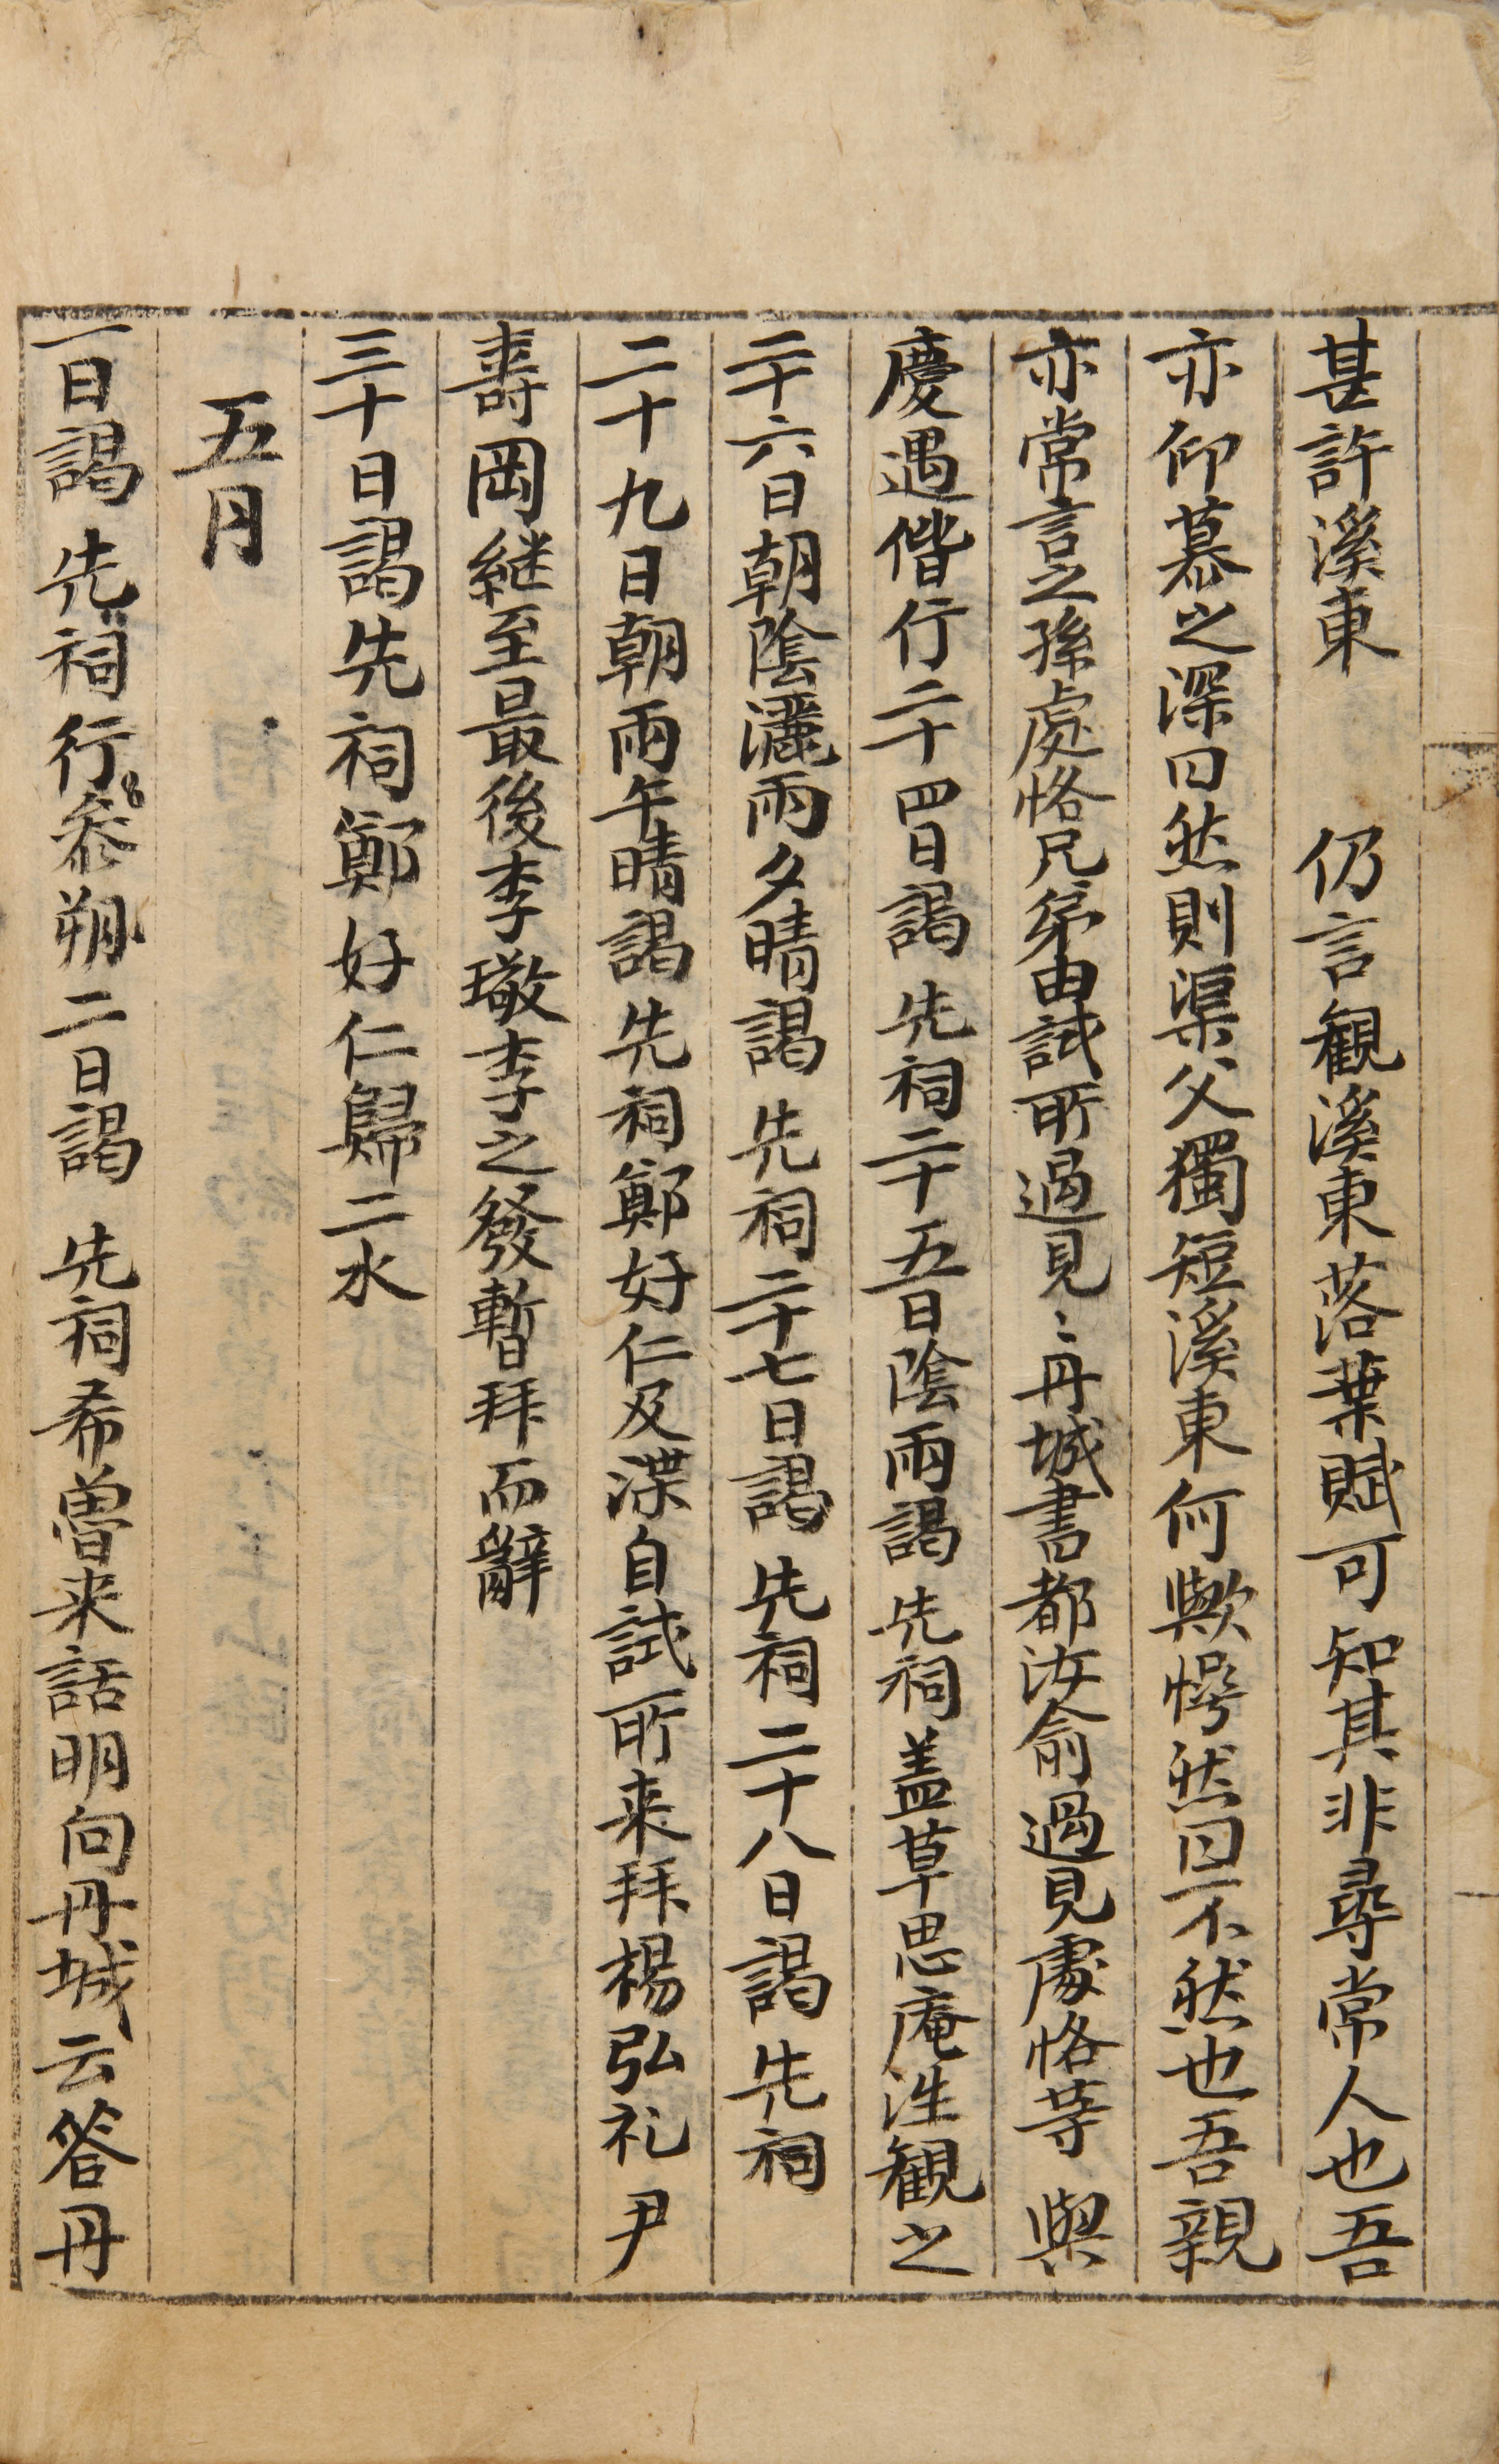 甚許溪東　　仍言觀溪東落葉賦可知其非尋常人也吾
亦仰慕之深曰然則渠父獨短溪東何歟愕然曰不然也吾親
亦常言之孫處恪兄弟由試所過見〻丹城書都汝俞過見處恪等　與
慶遇偕行二十四日謁　先祠二十五日陰雨謁　先祠盖草思庵洼觀之
二十六日朝陰灑雨夕晴謁　先祠二十七日謁　先祠二十八日謁　先祠
二十九日朝雨午晴謁　先祠鄭好仁及渫自試所来拜楊弘礼　尹
壽岡継至最後李璥李之發暫拜而辭
三十日謁先祠鄭好仁歸二水
五月
一日謁　先祠行参朔二日謁　先祠希曾来話明向丹城云答丹